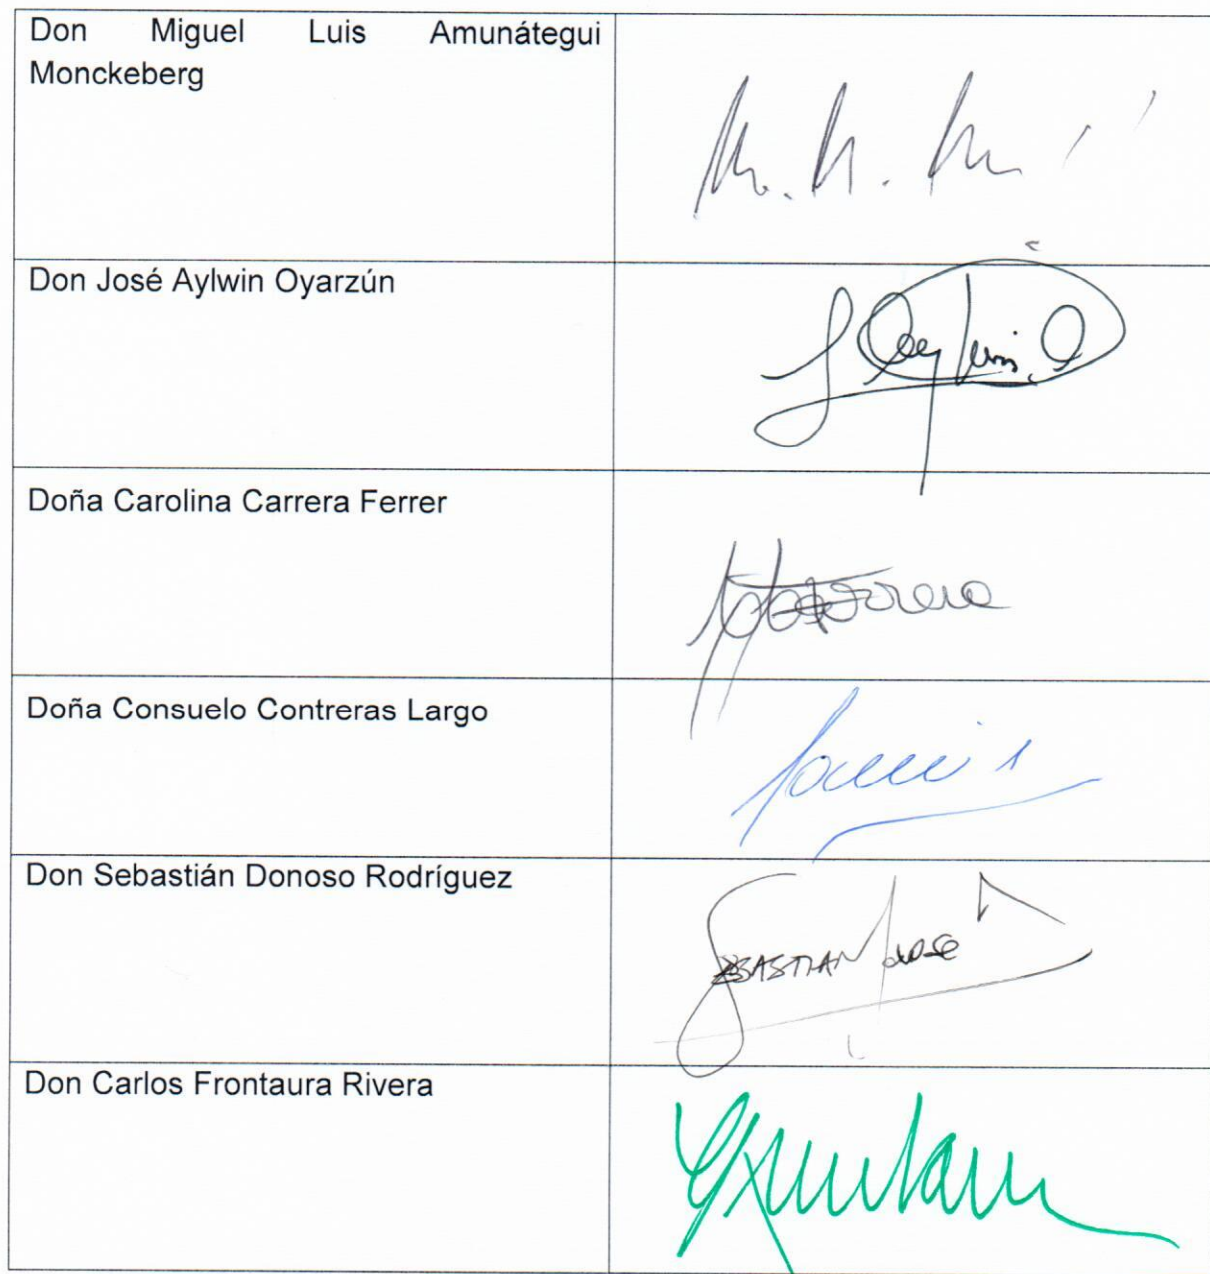 Don Miguel Luis Amunátegui
Monckeberg
Don José Aylwin Oyarzún
Doña Carolina Carrera Ferrer
Doña Consuelo Contreras Largo
Don Sebastián Donoso Rodríguez
SEBASTIAN
Don Carlos Frontaura Rivera